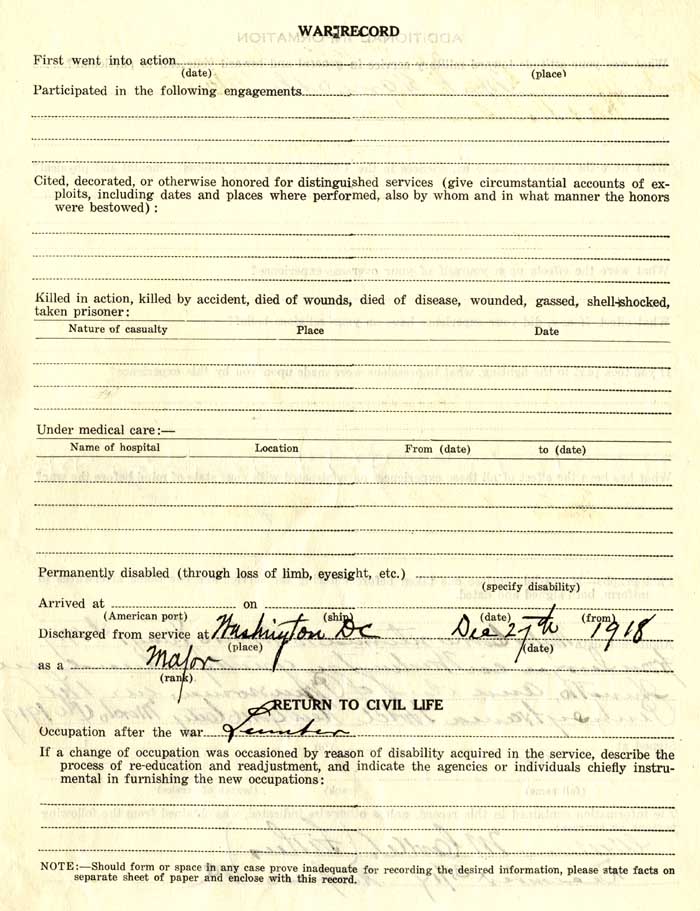 WAR RECORD
First went into action
(date) (place)
Participated in the following engagements
Cited, decorated, or otherwise honored for distinguished services (give circumstantial accounts of ex-
ploits, including dates and places where performed, also by whom and in what manner the honors
were bestowed) :
Killed in action, killed by accident, died of wounds, died of disease, wounded, gassed, shell-shocked,
taken prisoner:
Nature of casualty Place Date
Under medical care:—
Name of hospital Location From (date) to (date)
Permanently disabled (through loss of limb, eyesight, etc.)
(specify disability)
Arrived at on
(American port) (ship) (date) (from)
Discharged from service at Washington DC Dec 27th 1918
(place) (date)
as a Major
(rank)
RETURN TO CIVIL LIFE
Occupation after the war Lumber
If a change of occupation was occasioned by reason of disability acquired in the service, describe the
process of re-education and readjustment, and indicate the agencies or individuals chiefly instru-
mental in furnishing the new occupations:
NOTE:—Should form or space in any case prove inadequate for recording the desired information, please state facts on
separate sheet of paper and enclose with this record.